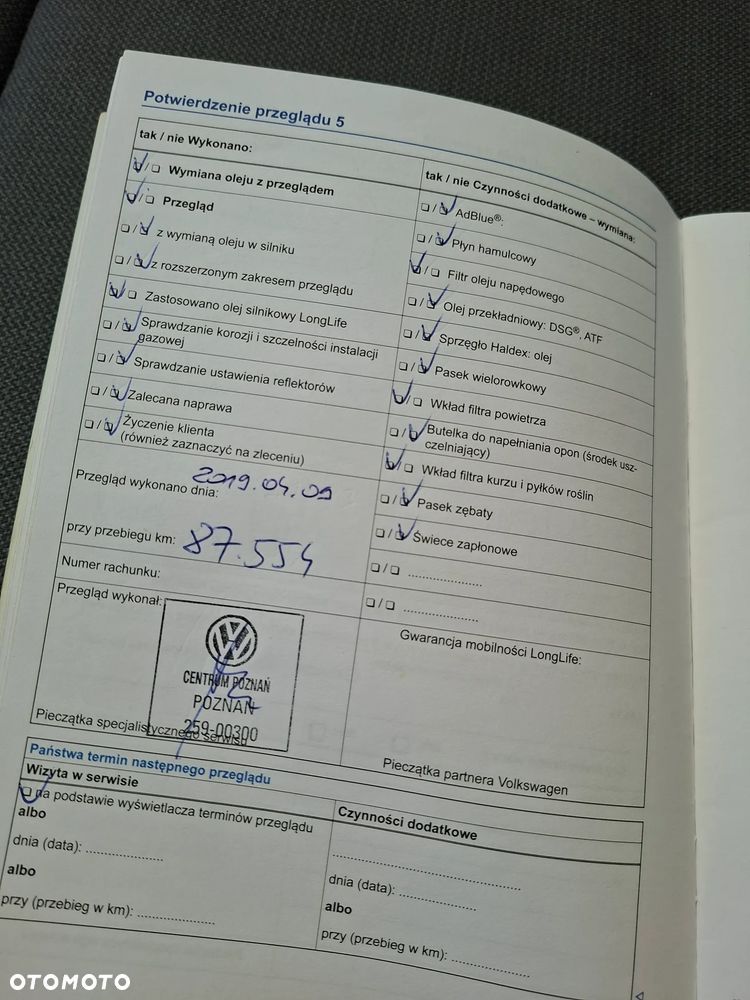 Potwierdzenie przeglądu 5
tak / nie Wykonano:
☑/☐ Wymiana oleju z przeglądem
☑/☐ Przegląd
☐/☑ z wymianą oleju w silniku
☐/☑ z rozszerzonym zakresem przeglądu
☑/☐ Zastosowano olej silnikowy LongLife
☐/☑ Sprawdzanie korozji i szczelności instalacji
gazowej
☐/☑ Sprawdzanie ustawienia reflektorów
☐/☑ Zalecana naprawa
☐/☑ Życzenie klienta
(również zaznaczyć na zleceniu)
Przegląd wykonano dnia: 2019.04.09
przy przebiegu km: 87.554
Numer rachunku:
Przegląd wykonał:
CENTRUM POZNAŃ
POZNAŃ
259-00300
Pieczątka specjalistycznego serwisu
tak / nie Czynności dodatkowe – wymiana:
☐/☑ AdBlue®:
☐/☑ Płyn hamulcowy
☑/☐ Filtr oleju napędowego
☐/☑ Olej przekładniowy: DSG®, ATF
☐/☑ Sprzęgło Haldex: olej
☐/☑ Pasek wielorowkowy
☑/☐ Wkład filtra powietrza
☐/☑ Butelka do napełniania opon (środek usz-
czelniający)
☑/☐ Wkład filtra kurzu i pyłków roślin
☐/☑ Pasek zębaty
☐/☑ Świece zapłonowe
☐/☐ ....................
☐/☐ ....................
Gwarancja mobilności LongLife:
Pieczątka partnera Volkswagen
Państwa termin następnego przeglądu
Wizyta w serwisie
☑ na podstawie wyświetlacza terminów przeglądu
albo
dnia (data): ....................
albo
przy (przebieg w km): ....................
Czynności dodatkowe
..................................................
dnia (data): ....................
albo
przy (przebieg w km): ....................
OTOMOTO